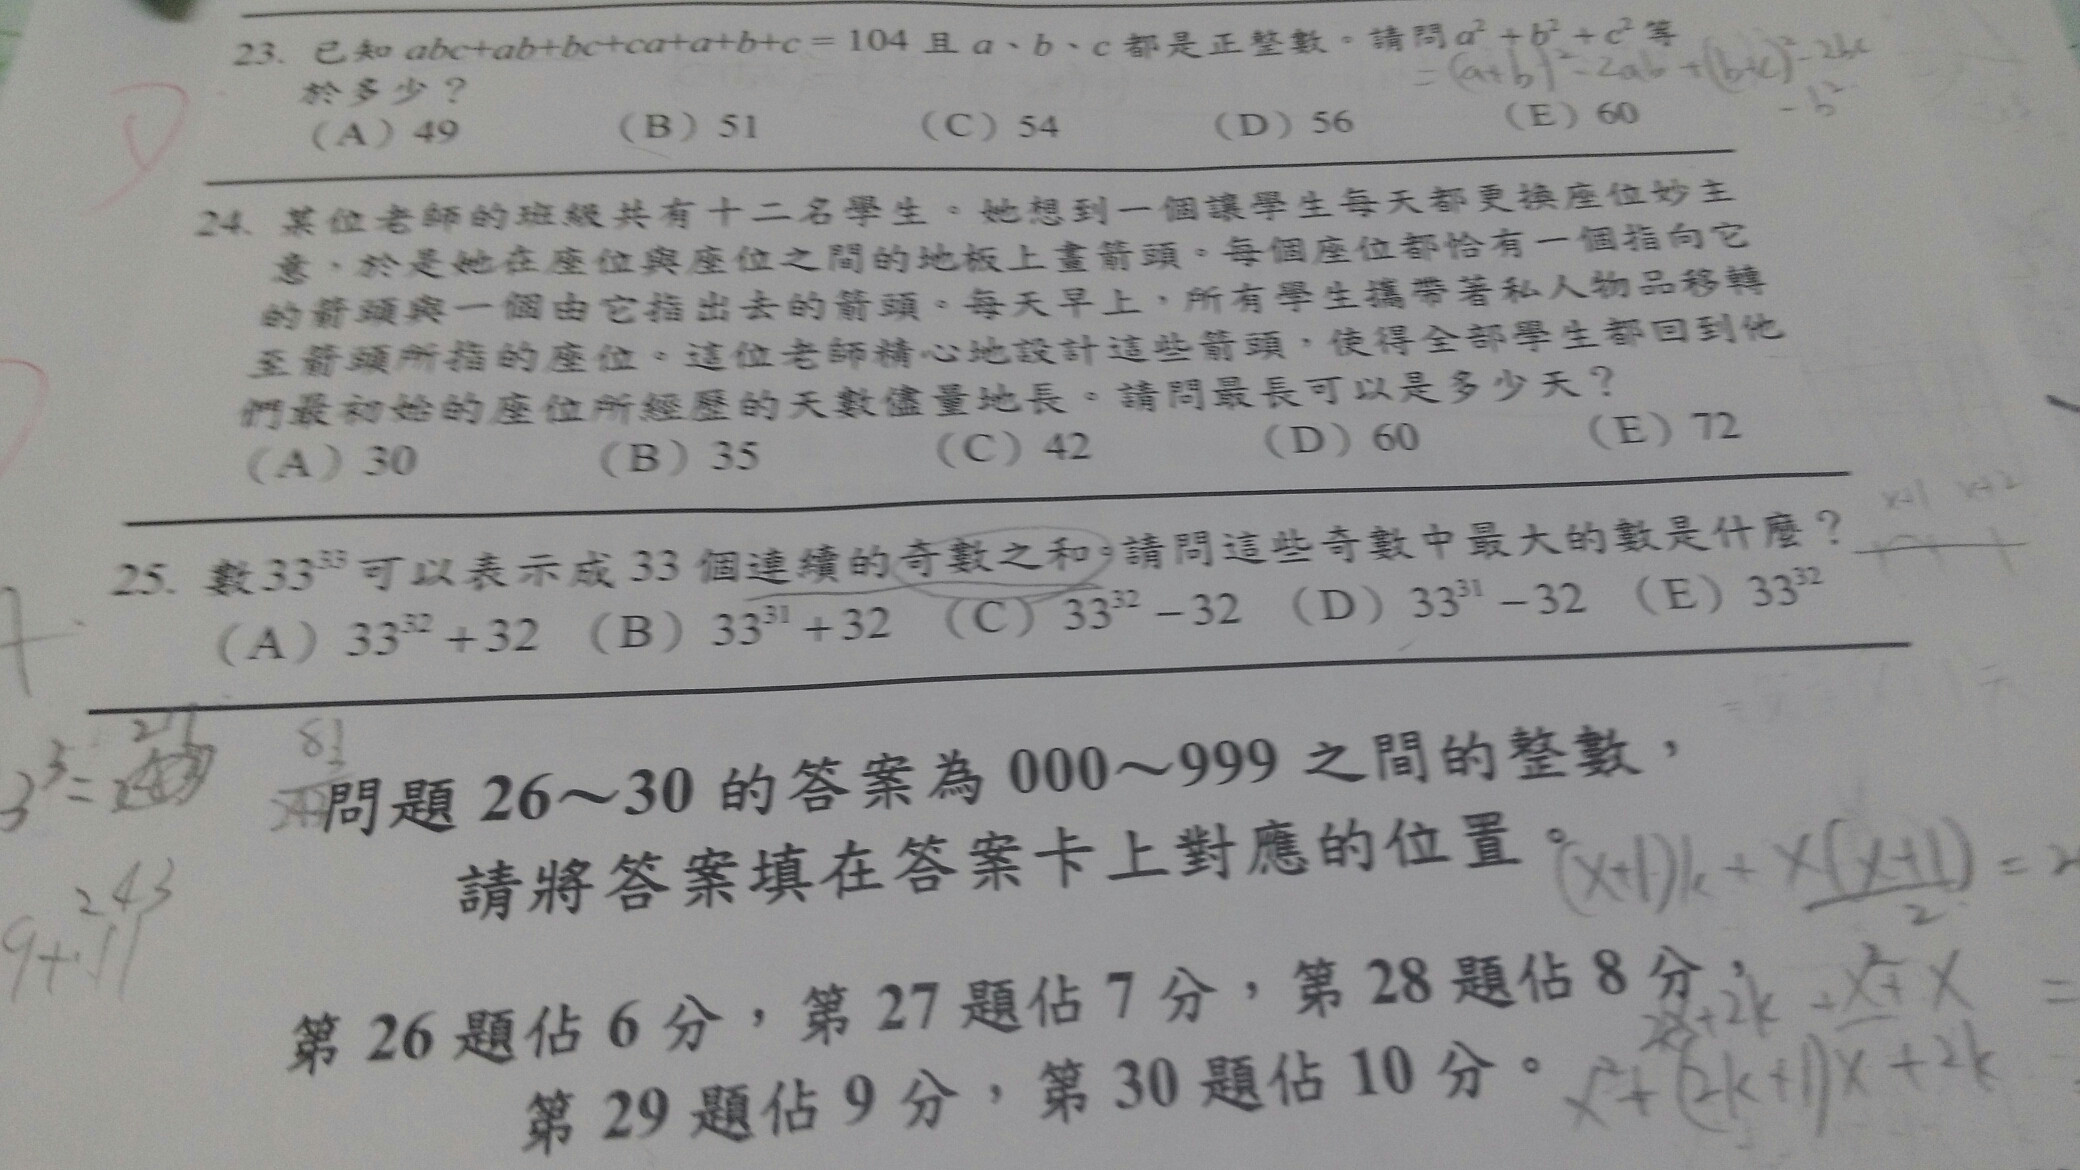 23. 已知 abc+ab+bc+ca+a+b+c = 104 且 a、b、c 都是正整數。請問 a² + b² + c² 等
= (a+b)² - 2ab + (b+c)² - 2bc
於多少？
- b²
(A) 49 (B) 51 (C) 54 (D) 56 (E) 60
24. 某位老師的班級共有十二名學生。她想到一個讓學生每天都更換座位妙主
意，於是她在座位與座位之間的地板上畫箭頭。每個座位都恰有一個指向它
的箭頭與一個由它指出去的箭頭。每天早上，所有學生攜帶著私人物品移轉
至箭頭所指的座位。這位老師精心地設計這些箭頭，使得全部學生都回到他
們最初始的座位所經歷的天數儘量地長。請問最長可以是多少天？
(A) 30 (B) 35 (C) 42 (D) 60 (E) 72
x+1 x+2
25. 數 33³³ 可以表示成 33 個連續的奇數之和。請問這些奇數中最大的數是什麼？
(A) 33³² + 32 (B) 33³¹ + 32 (C) 33³² − 32 (D) 33³¹ − 32 (E) 33³²
27
3³ =
81
問題 26～30 的答案為 000～999 之間的整數，
請將答案填在答案卡上對應的位置。
(x+1)k + x(x+1)/2 =
243
9+11
第 26 題佔 6 分，第 27 題佔 7 分，第 28 題佔 8 分，
+2k + x² + x =
第 29 題佔 9 分，第 30 題佔 10 分。
x² + (2k+1)x + 2k